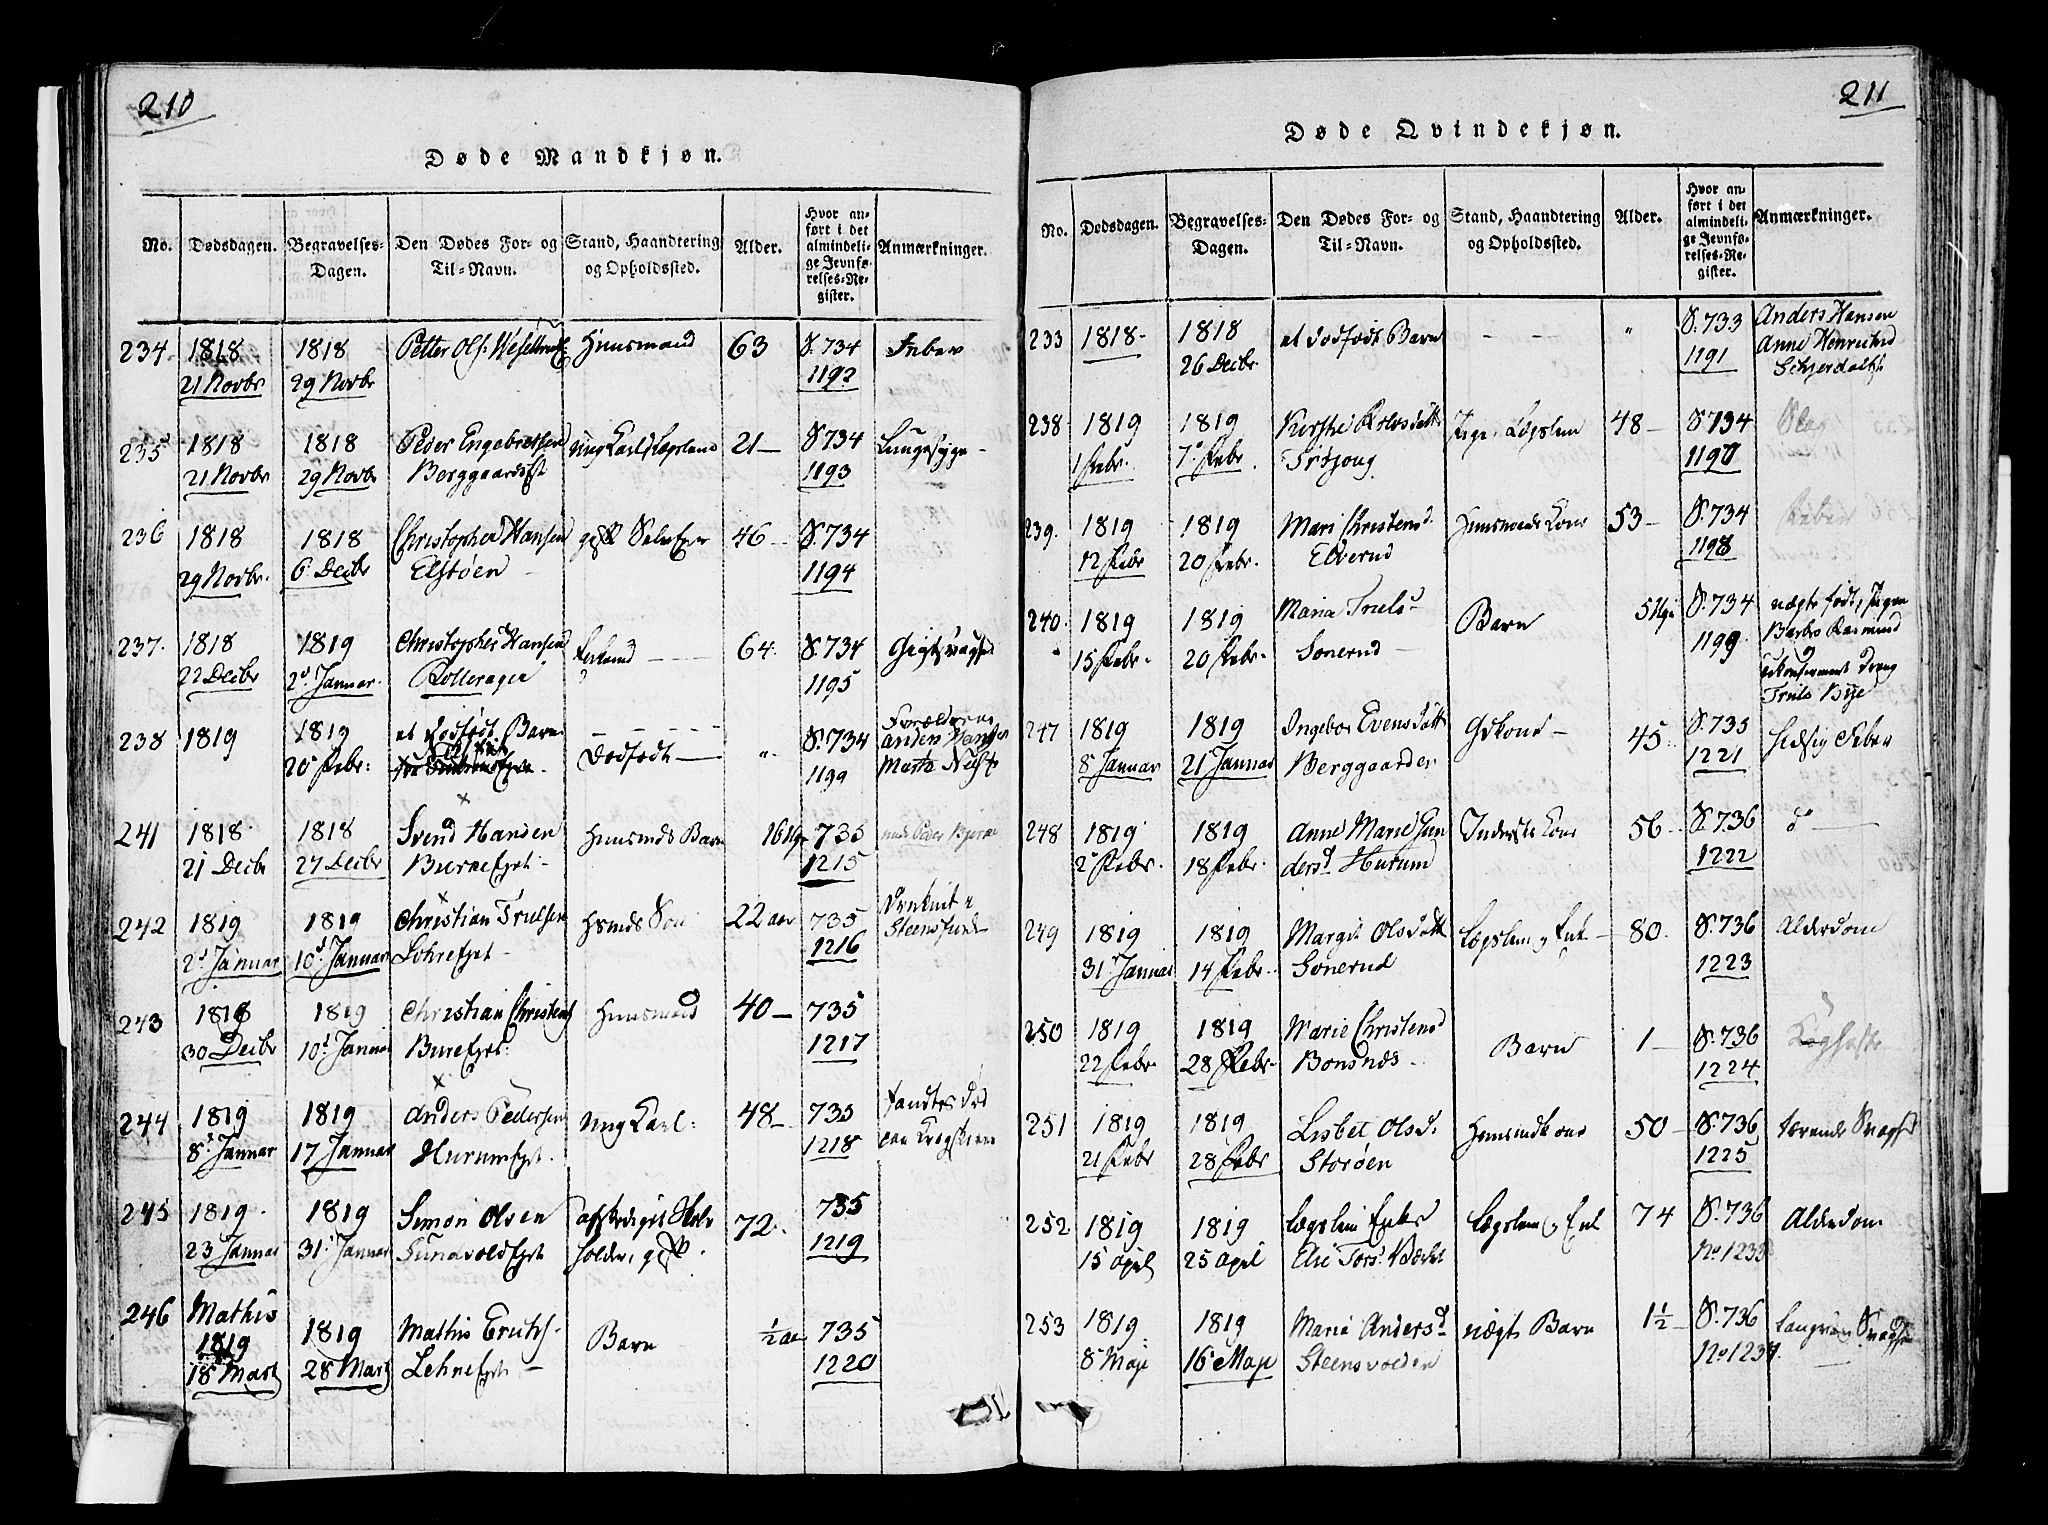 210
Døde Mandkjøn.
No. Dødsdagen. Begravelses-Dagen. Den Dødes For- og Til-Navn. Stand, Haandtering og Opholdssted. Alder. Hvor anført i det almindelige Jevnførelses-Register. Anmærkninger.
234. 1818 1818 Petter Ols. Huusmand 63 S. 734 Feber
21 Novbr 29 Novbr 1192
235 1818 1818 Peder Engebretsen ung Karl Lægslem 21 — S. 734 Lungesyge -
21 Novbr 29 Novbr Berggaardsejet 1193
236 1818 1818 Christopher Hansen gift Selvejer 46 — S. 734
29 Novbr. 6 Decbr Elstøen 1194
237. 1818 1819 Christopher Hansen 64. S. 734 Gigtsvaghed
22 Decbr 2d Januar. 1195
238 1819 1819 et dødfødt Barn Dødfødt — " S. 734 Forældrene
20 Febr: 1199 Anders Hansen
Marte
241 1818 1818 Svend Hansen Huusmds Barn 16 Ug 735
21 Decbr 27 Decbr Burueejet - 1215
242 1819 1819 Christian Trulsen Hsmds Søn 22 aar 735 Druknet i
2d Januar 10d Januar Lohreejet - 1216 Steensfiord
243 1818 1819 Christian Christens Huusmand 40 — 735
30 Decbr 10d Januar Burejet: 1217
244 1819 1819 Anders Pedersen ung Karl: 48 — 735 fandtes død
8d Januar 17 Januar Hurumejet. 1218 paa Krogskoven
245 1819 1819 Simon Olsen afskediget 72. 735
23 Januar 31 Januar Sundvoldejet holder, gift. 1219
246 Mathis
1819 1819 Mathis Erichs- Barn ½ aar 735
18 Marts 28 Marts Lehneejet — 1220
211
Døde Qvindekjøn.
No. Dødsdagen. Begravelses-Dagen. Den Dødes For- og Til-Navn. Stand, Haandtering og Opholdssted. Alder. Hvor anført i det almindelige Jevnførelses-Register. Anmærkninger.
233 1818 1818 et dødfødt Barn - - - " S. 733 Anders Hansen
26 Decbr. 1191 Anne Henricsd
238 1819 1819 Kirstie Lægslem 48 — S. 734
1 Febr. 7 Febr.
239. 1819 1819 Mari Christensd. Huusmands Kone 53 — S. 734 Feber
12 Febr 20 Febr. Elverud 1198
240. 1819 1819 Maria Trulsd Barn 5 Ugr S. 734 uægte født, Pigen
15 Febr. 20 Febr. Sonerud — 1199. Barbro Rasmusd
og
ukonfirmeret Dreng
Truls Bye
247 1819 1819 Ingebor Evensdatter Gkone — 45 S. 735 hidsig Feber
8 Januar 21 Januar Berggaarden 1221
248 1819 1819 Anne Marie Gun Inderste Kone 56 S. 736 d° —
2 Febr. 18 Febr. dersd. Hurum 1222
249 1819 1819 Margit Olsdatt Lægslem, Enke — 80. S. 736 Alderdom
31 Januar 14 Febr. Sonerud 1223
250 1819 1819 Marie Christensd Barn 1 — S. 736 Kighoste
22 Febr. 28 Febr. Bonsnæs - 1224
251 1819 1819 Lisbet Olsd. Huusmdkone 50 — S. 736 tærende Svaghed
21 Febr 28 Febr Storøen 1225
252 1819 1819 Lægslem Enke Lægslem, Enk 74 S. 736 Alderdom
15 April 25 April No. 1233
253 1819 1819 Marie Andersd uægte Barn 1½ — S. 736 Langvarig Svaghed
8 Maje 16 Maje Steensvolden No. 1234